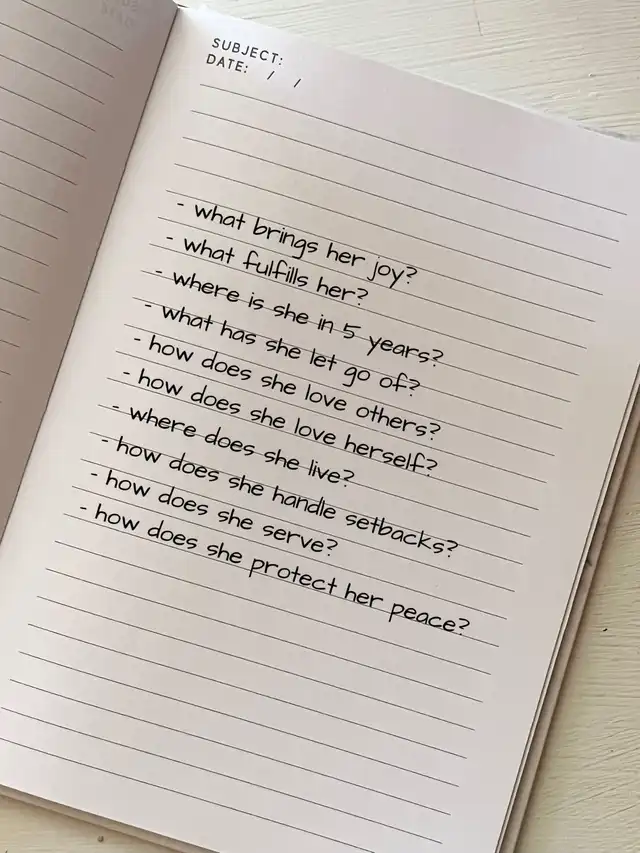 SUBJECT:
DATE: / /
- what brings her joy?
- what fulfills her?
- where is she in 5 years?
- what has she let go of?
- how does she love others?
- how does she love herself?
- where does she live?
- how does she handle setbacks?
- how does she serve?
- how does she protect her peace?